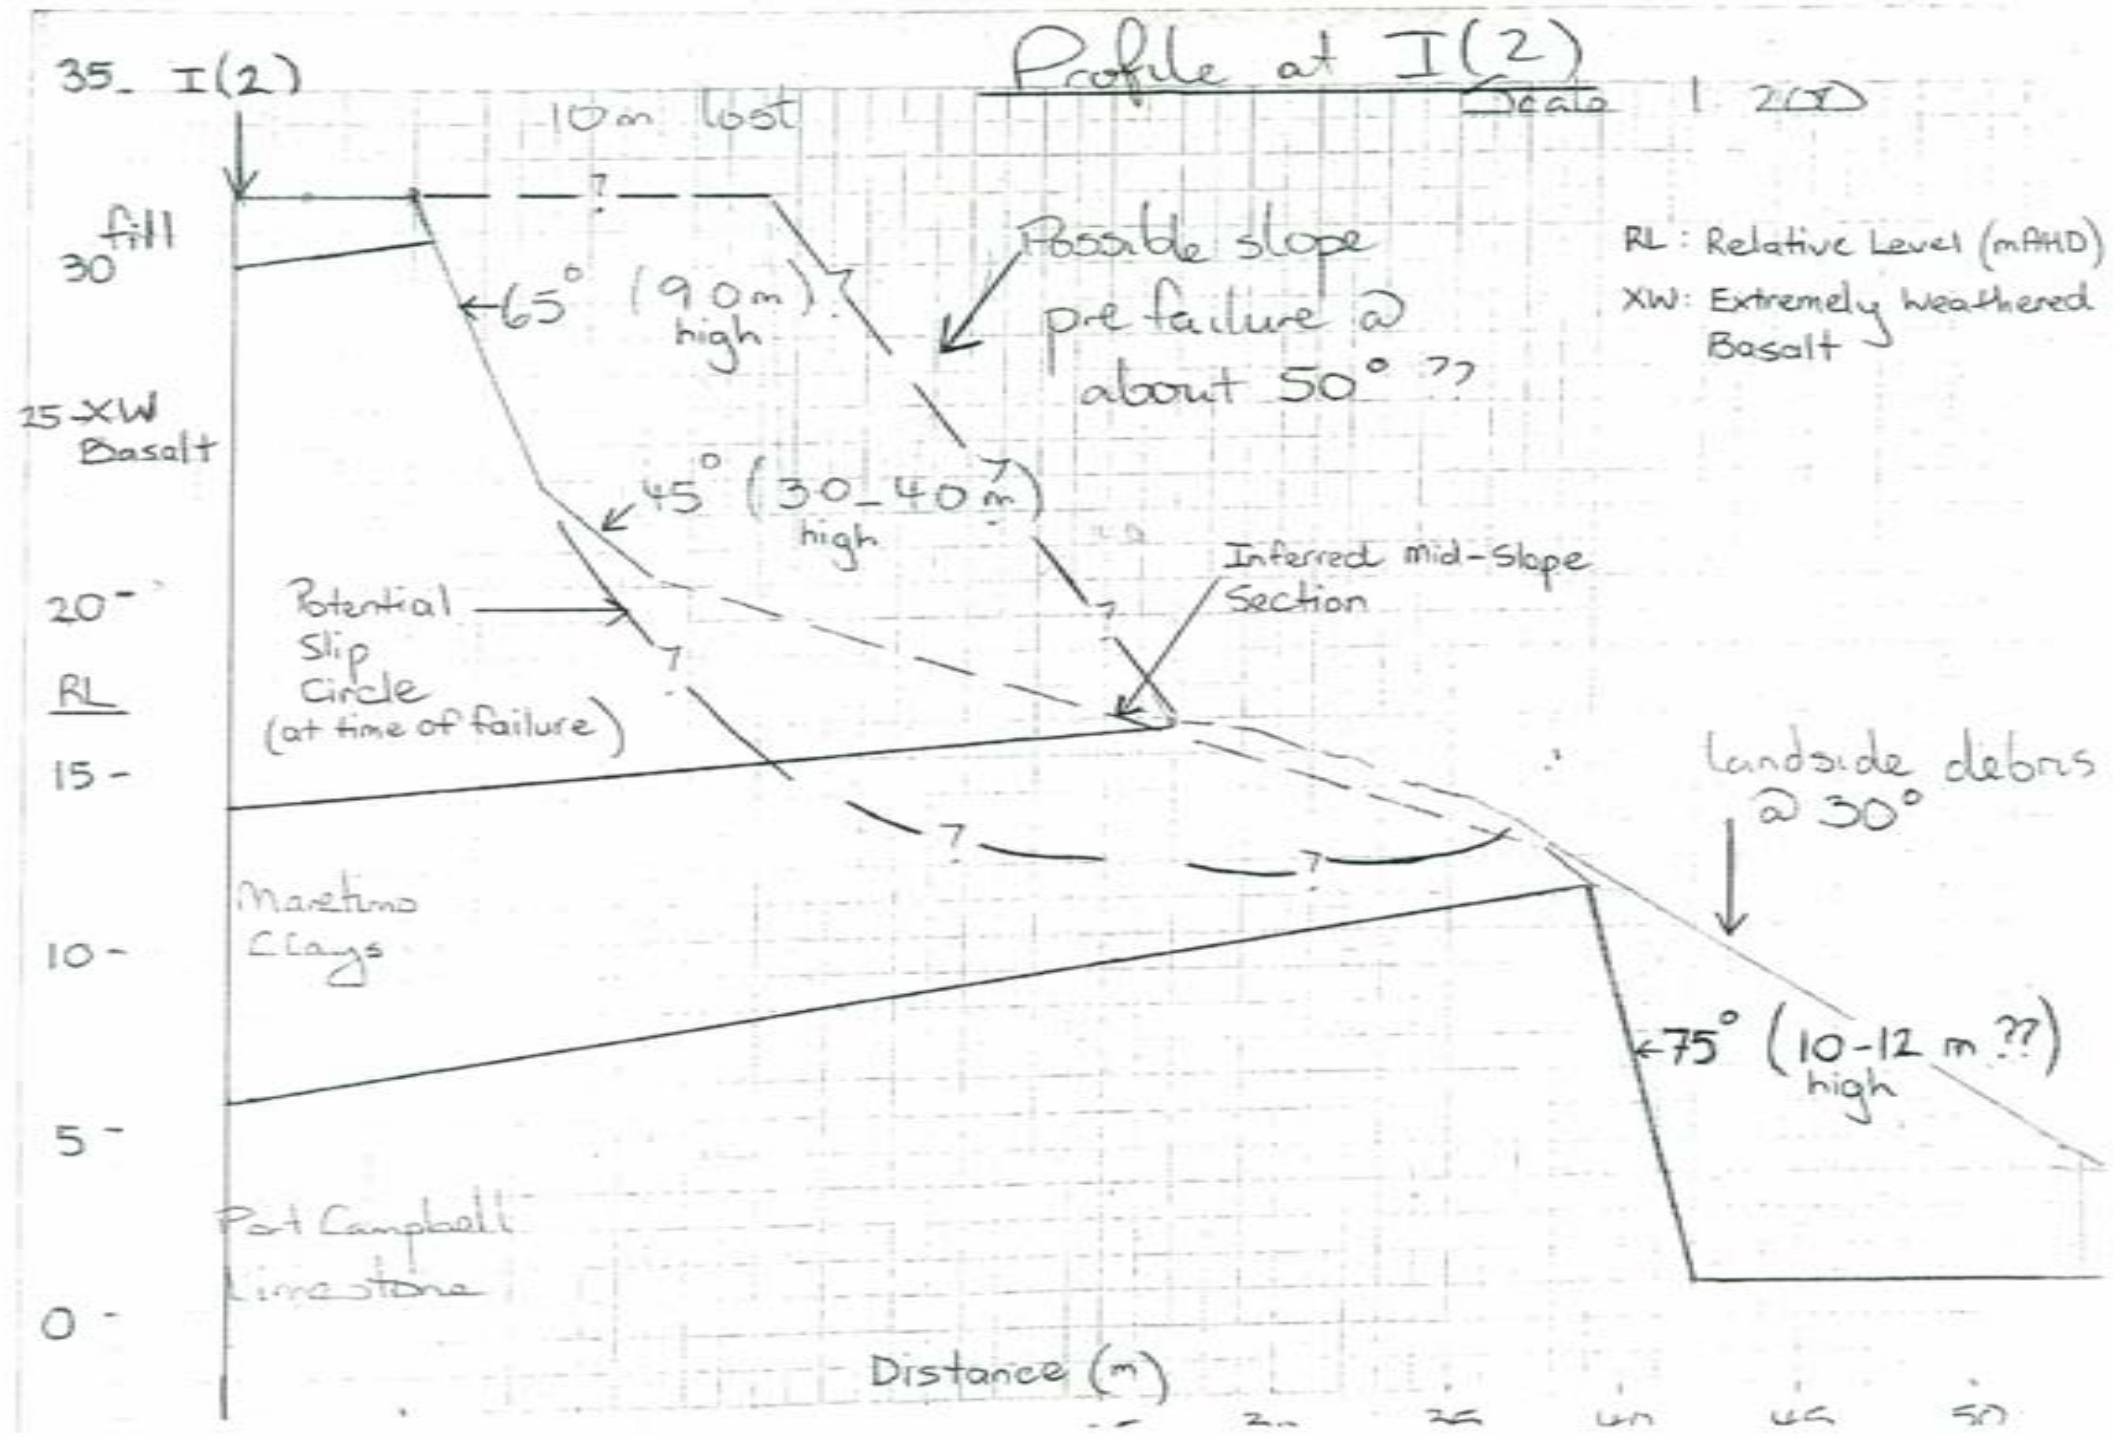 Profile at I(2)
Scale 1 200
35 I(2)
10m lost
?
fill
30
65° (90m)
high
Possible slope
pre failure @
about 50° ??
RL: Relative Level (mAHD)
XW: Extremely Weathered
Basalt
25 XW
Basalt
45° (30-40m)
high
?
Inferred mid-slope
Section
20
Potential
Slip
Circle
(at time of failure)
?
?
RL
15
landside debris
@ 30°
?
?
Maretimo
Clays
10
75° (10-12 m ??)
high
5
Port Campbell
Limestone
0
Distance (m)
45 50